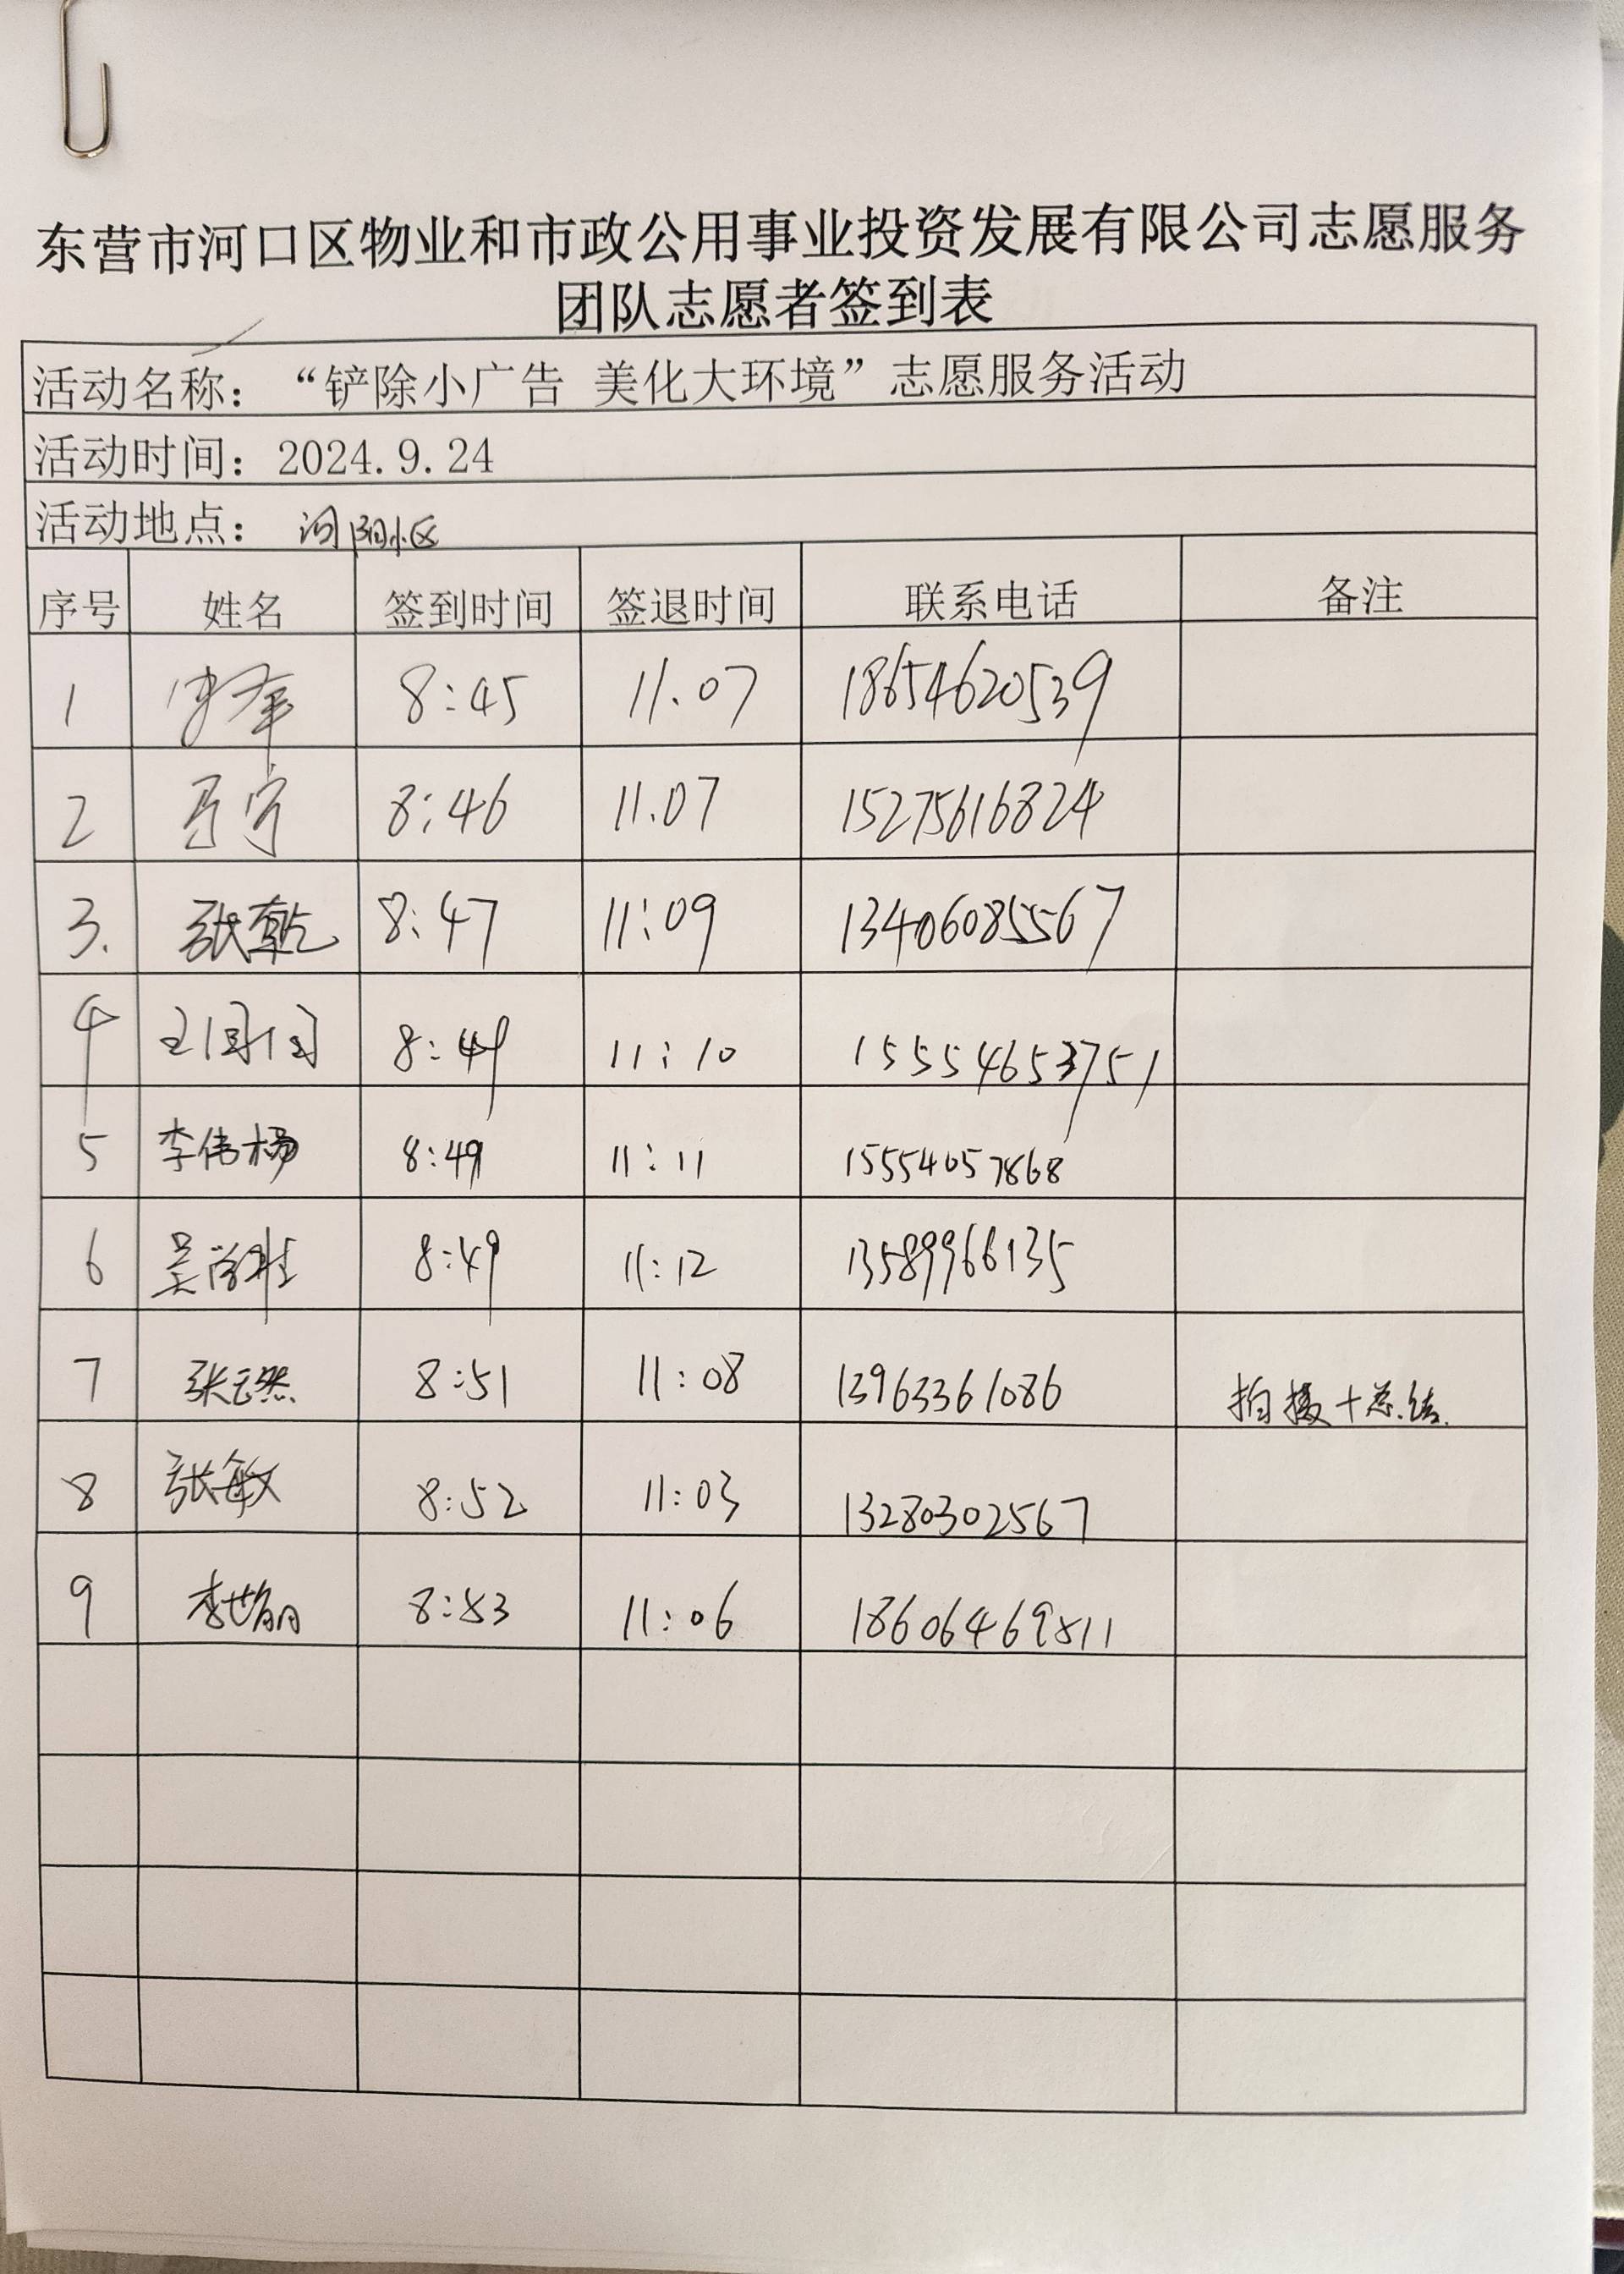 东营市河口区物业和市政公用事业投资发展有限公司志愿服务
团队志愿者签到表
活动名称：“铲除小广告 美化大环境”志愿服务活动
活动时间：2024.9.24
活动地点：河阳小区
序号 姓名 签到时间 签退时间 联系电话 备注
1 8:45 11.07 18654620539
2 8:46 11.07 15275616824
3. 张乾 8:47 11:09 13406085567
4 8:49 11:10 15554653751
5 李伟杨 8:49 11:11 15554057868
6 8:49 11:12 13589966135
7 8:51 11:08 13963361086 拍摄+总结
8 张敏 8:52 11:03 13280302567
9 8:53 11:06 18606469811